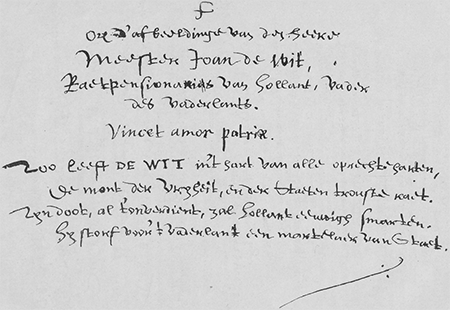 Op d'afbeeldinge van den heere
Meester Joan de Wit,
Raetpensionaris van Hollant, vader
des vaderlants.
Vincet amor patriæ.
Zoo leeft DE WIT in't hart van alle oprechte harten,
De mont der Vryheit, en der Staeten trouste raet.
Zyn doot, al t'onverdient, zal Hollant eeuwigh smarten.
Hy storf voor 't Vaderlant een martelaer van Staet.